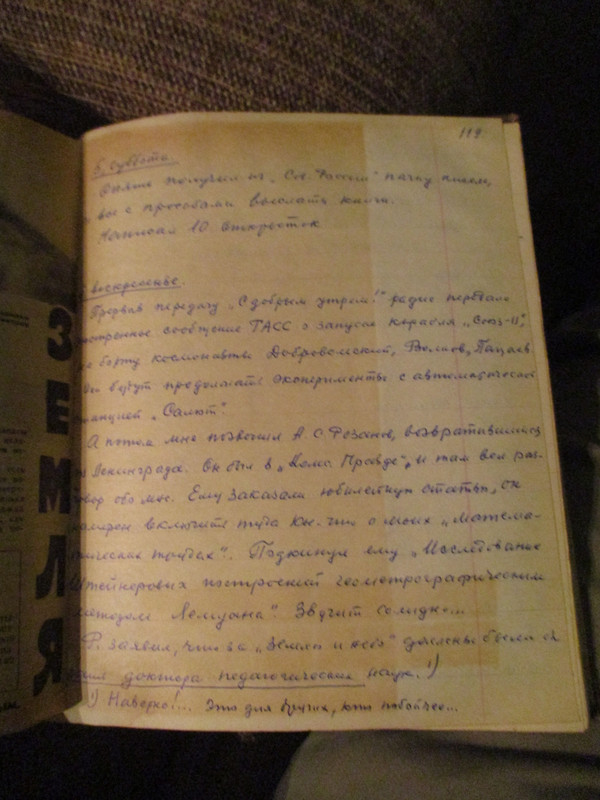 119
5, суббота.
Опять получил из „Сов. России" пачку писем,
все с просьбами выслать книги.
Написал 10 открыток
воскресенье.
Прервав передачу „С добрым утром!" радио передало
экстренное сообщение ТАСС о запуске корабля „Союз-11",
на борту космонавты Добровольский, Волков, Пацаев
Они будут продолжать эксперименты с автоматической
станцией „Салют".
А потом мне позвонил А. О. Розанов, возвратившийся
из Ленинграда. Он был в „Комс. Правде", и там вел раз-
говор обо мне. Ему заказали юбилейную статью, он
намерен включить туда кое-что о моих „матема-
тических трудах". Подкинул ему „Исследование
Штейнеровых построений геометрографическим
методом Лемуана". Звучит солидно...
Р. заявил, что за „Земля и небо" должны были
доктора педагогических наук. ¹)
¹) Наверно!... Это для других, кто побойчее...
ЗЕМЛЯ